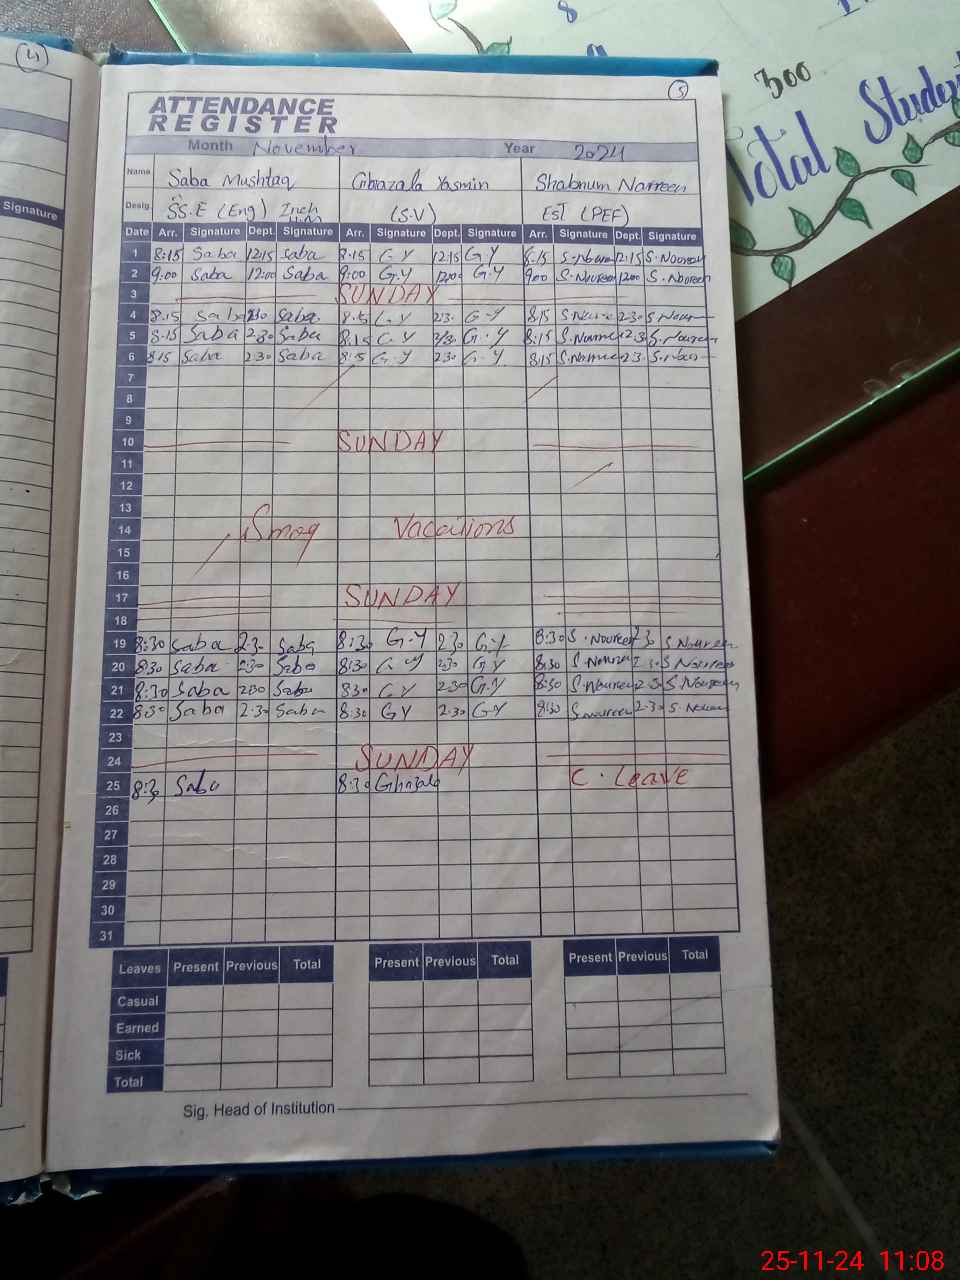 (4)
Signature
8
300
Total Students
(5)
ATTENDANCE
REGISTER
Month November Year 2024
Name Saba Mushtaq Ghazala Yasmin Shabnum Naureen
Desig. SS.E (Eng) Inch (S.V) EST (PEF)
Date Arr. Signature Dept. Signature Arr. Signature Dept. Signature Arr. Signature Dept. Signature
1 8:15 Saba 12:15 Saba 8:15 G.Y 12:15 G.Y 8:15 12:15 S.Noureen
2 9:00 Saba 12:00 Saba 9:00 G.Y 12:00 G.Y 9:00 S.Naureen 12:00 S.Nooreen
3 SUNDAY
4 8:15 Saba 2:30 Saba 8:15 G.Y 2:30 G.Y 8:15 2:30
5 8:15 Saba 2:30 Saba 8:15 G.Y 2:30 G.Y 8:15 2:30 S.Noureen
6 8:15 Saba 2:30 Saba 8:15 G.Y 2:30 G.Y 8:15 2:30
7
8
9
10 SUNDAY
11
12
13
14 Smog Vacations
15
16
17 SUNDAY
18
19 8:30 Saba 2:30 Saba 8:30 G.Y 2:30 G.Y 8:30 S.Noureen 2:30 S Noureen
20 8:30 Saba 2:30 Saba 8:30 G.Y 2:30 G.Y 8:30 S.Noureen 2:30 S Noureen
21 8:30 Saba 2:30 Saba 8:30 G.Y 2:30 G.Y 8:30 S.Naureen 2:30 S.Noureen
22 8:30 Saba 2:30 Saba 8:30 GY 2:30 GY 8:30 S Naureen 2:30
23
24 SUNDAY
25 8:30 Saba 8:30 Ghazala C. Leave
26
27
28
29
30
31
Leaves Present Previous Total Present Previous Total Present Previous Total
Casual
Earned
Sick
Total
Sig. Head of Institution
25-11-24 11:08